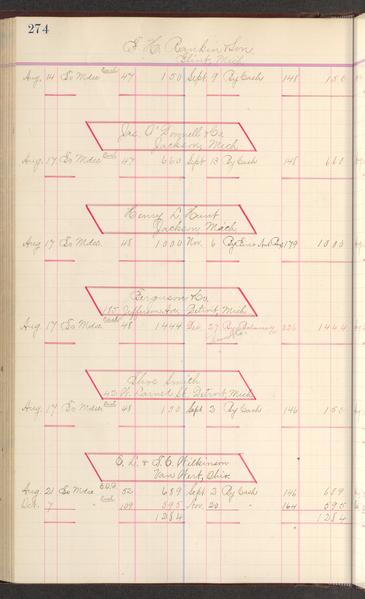 274
Rankin & Son
Flint, Mich
Aug. 14 To Mdse Cash 47 1 50 Sept. 9 By Cash 148 1 50
Jas. O'Donnell & Co.
Jackson, Mich
Aug. 17 To Mdse Cash 47 6 60 Sept 13 By Cash 148 6 60
Henry L. Hunt
Jackson Mich
Aug 17 To Mdse. 48 10 00 Nov. 6 179 10 00
Ferguson & Co.
185 Jefferson Ave. Detroit, Mich
Aug 17 To Mdse Cash 48 14 44 Dec. 27 By Balance 226 14 44
Smith
W. St. Detroit, Mich
Aug. 17 To Mdse. Cash 48 1 50 Sept 3 By Cash 146 1 50
Wilkinson
Van Wert, Ohio.
Aug. 21 To Mdse C.O.D. 52 6 89 Sept. 3 By Cash 146 6 89
Oct. 7 " Cash 109 5 95 Nov. 20 " 164 5 95
12 84 12 84